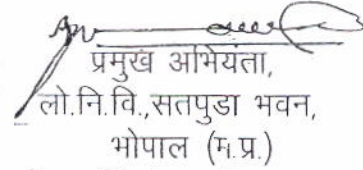 प्रमुख अभियंता,
लो.नि.वि.,सतपुडा भवन,
भोपाल (म.प्र.)